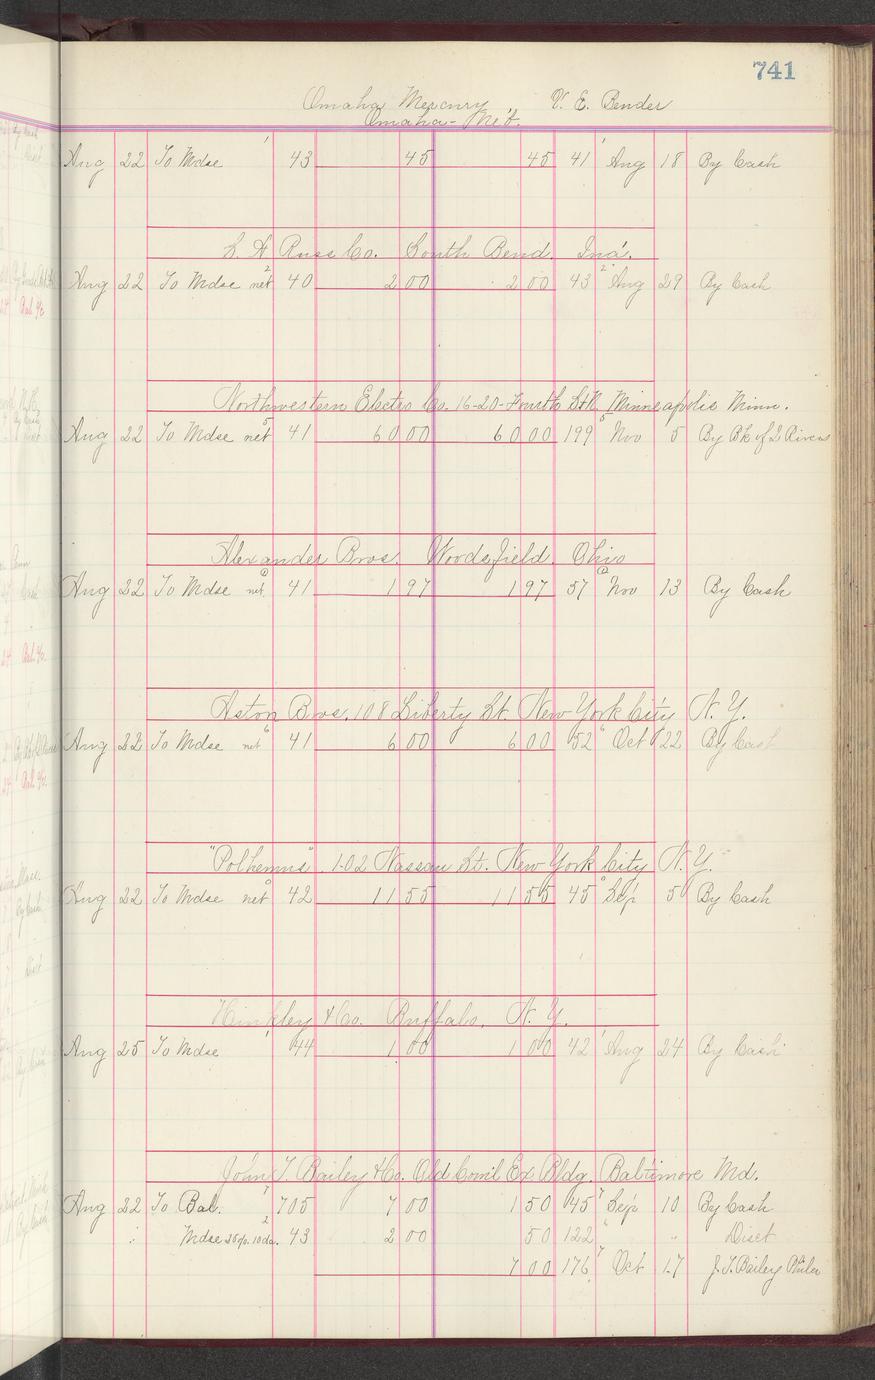 741
Omaha Mercury V. E. Bender
Omaha - Neb.
Aug 22 To Mdse 43 45 45 41 Aug 18 By Cash
South Bend, Ind.
Aug 22 To Mdse net 40 2 00 2 00 43 Aug 29 By Cash
Northwestern Electro Co. 16-20-Fourth St N. Minneapolis Minn.
Aug 22 To Mdse net 41 60 00 60 00 199 Nov 5 By Bk of 2 Rivers
Alexander Bros. Woodsfield. Ohio
Aug 22 To Mdse net 41 1 97 1 97 57 Nov 13 By Cash
Aston Bros. 108 Liberty St. New York City N. Y.
Aug 22 To Mdse net 41 6 00 6 00 52 Oct 22 By Cash
"Polhemus" 102 Nassau St. New York City N. Y.
Aug 22 To Mdse net 42 11 55 11 55 45 Sep 5 By Cash
Hinkley & Co. Buffalo, N. Y.
Aug 25 To Mdse 44 1 00 1 00 42 Aug 24 By Cash
John T. Bailey & Co. Old Coml Ex Bldg. Baltimore Md.
Aug 22 To Bal. 705 7 00 1 50 45 Sep 10 By Cash
Mdse 10da. 43 2 00 50 122 " Disct
7 00 176 Oct 17 J. T. Bailey Phila